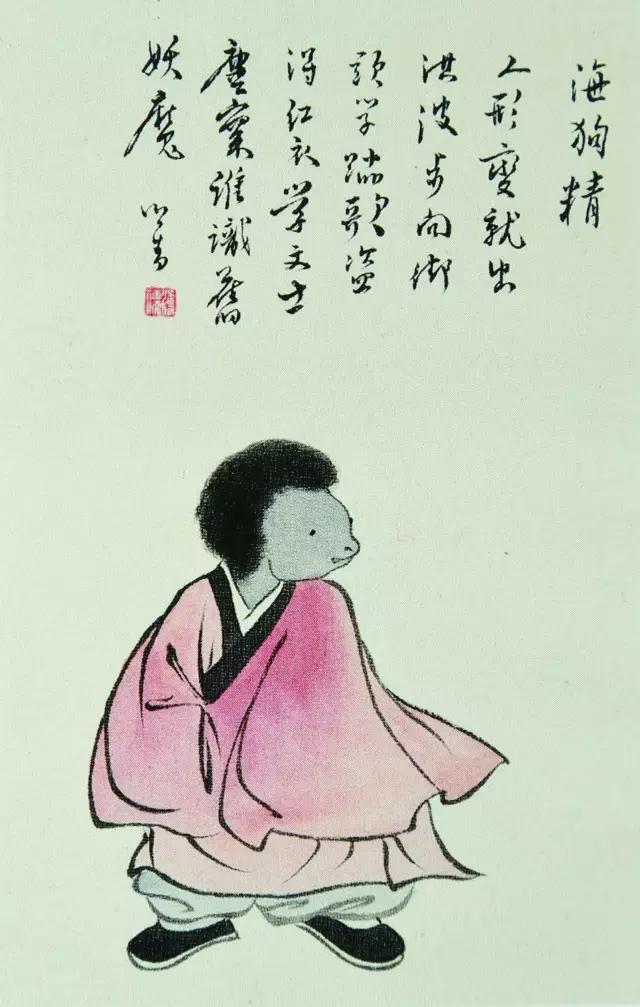 海狗精
人形变就出
洪波步向街
頭学踏歌盗
得红衣学文士
塵寰谁識舊
妖魔 心畬